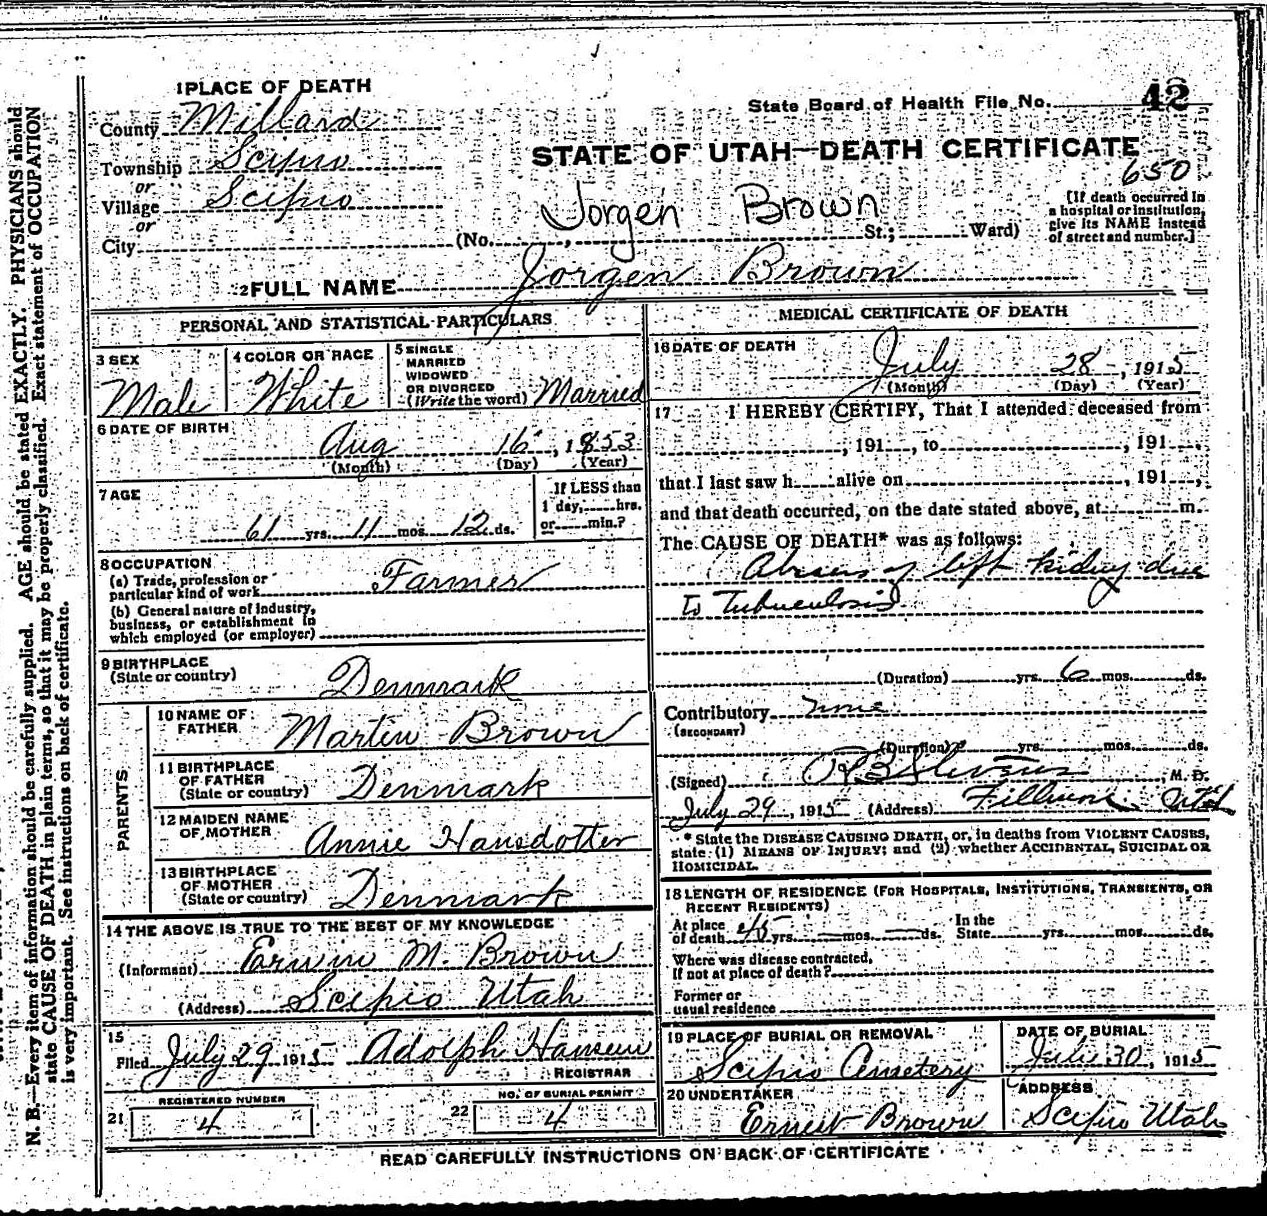 1 PLACE OF DEATH
County Millard
Township Scipio
or
Village Scipio
or
City
State Board of Health File No. 42
STATE OF UTAH—DEATH CERTIFICATE
650
Jorgen Brown
(No. , St.; Ward)
[If death occurred in a hospital or institution, give its NAME instead of street and number.]
2 FULL NAME Jorgen Brown
PERSONAL AND STATISTICAL PARTICULARS
3 SEX
Male
4 COLOR OR RACE
White
5 SINGLE
MARRIED
WIDOWED
OR DIVORCED
(Write the word) Married
6 DATE OF BIRTH
Aug 16, 1853
(Month) (Day) (Year)
7 AGE
61 yrs. 11 mos. 12 ds.
If LESS than
1 day, hrs.
or min.?
8 OCCUPATION
(a) Trade, profession or
particular kind of work Farmer
(b) General nature of industry,
business, or establishment in
which employed (or employer)
9 BIRTHPLACE
(State or country) Denmark
PARENTS
10 NAME OF
FATHER Martin Brown
11 BIRTHPLACE
OF FATHER
(State or country) Denmark
12 MAIDEN NAME
OF MOTHER Annie Hansdotter
13 BIRTHPLACE
OF MOTHER
(State or country) Denmark
14 THE ABOVE IS TRUE TO THE BEST OF MY KNOWLEDGE
(Informant) Erwin M. Brown
(Address) Scipio Utah
15
Filed July 29 1915 Adolph Hansen
REGISTRAR
21 REGISTERED NUMBER
4
22 NO. OF BURIAL PERMIT
4
MEDICAL CERTIFICATE OF DEATH
16 DATE OF DEATH
July 28, 1915
(Month) (Day) (Year)
17 I HEREBY CERTIFY, That I attended deceased from
, 191 , to , 191 ,
that I last saw h alive on , 191 ,
and that death occurred, on the date stated above, at m.
The CAUSE OF DEATH* was as follows:
Abscess of left kidney due
to Tuberculosis
(Duration) yrs. 6 mos. ds.
Contributory none
(SECONDARY)
(Duration) yrs. mos. ds.
(Signed) R B Stevens M. D.
July 29, 1915 (Address) Fillmore Utah
* State the DISEASE CAUSING DEATH, or, in deaths from VIOLENT CAUSES,
state (1) MEANS OF INJURY; and (2) whether ACCIDENTAL, SUICIDAL OR
HOMICIDAL.
18 LENGTH OF RESIDENCE (FOR HOSPITALS, INSTITUTIONS, TRANSIENTS, OR
RECENT RESIDENTS)
At place
of death 45 yrs. — mos. — ds.
In the
State yrs. mos. ds.
Where was disease contracted,
If not at place of death?
Former or
usual residence
19 PLACE OF BURIAL OR REMOVAL
Scipio Cemetery
DATE OF BURIAL
July 30, 1915
20 UNDERTAKER
Ernest Brown
ADDRESS
Scipio Utah
READ CAREFULLY INSTRUCTIONS ON BACK OF CERTIFICATE
N. B.—Every item of information should be carefully supplied. AGE should be stated EXACTLY. PHYSICIANS should
state CAUSE OF DEATH in plain terms, so that it may be properly classified. Exact statement of OCCUPATION
is very important. See instructions on back of certificate.